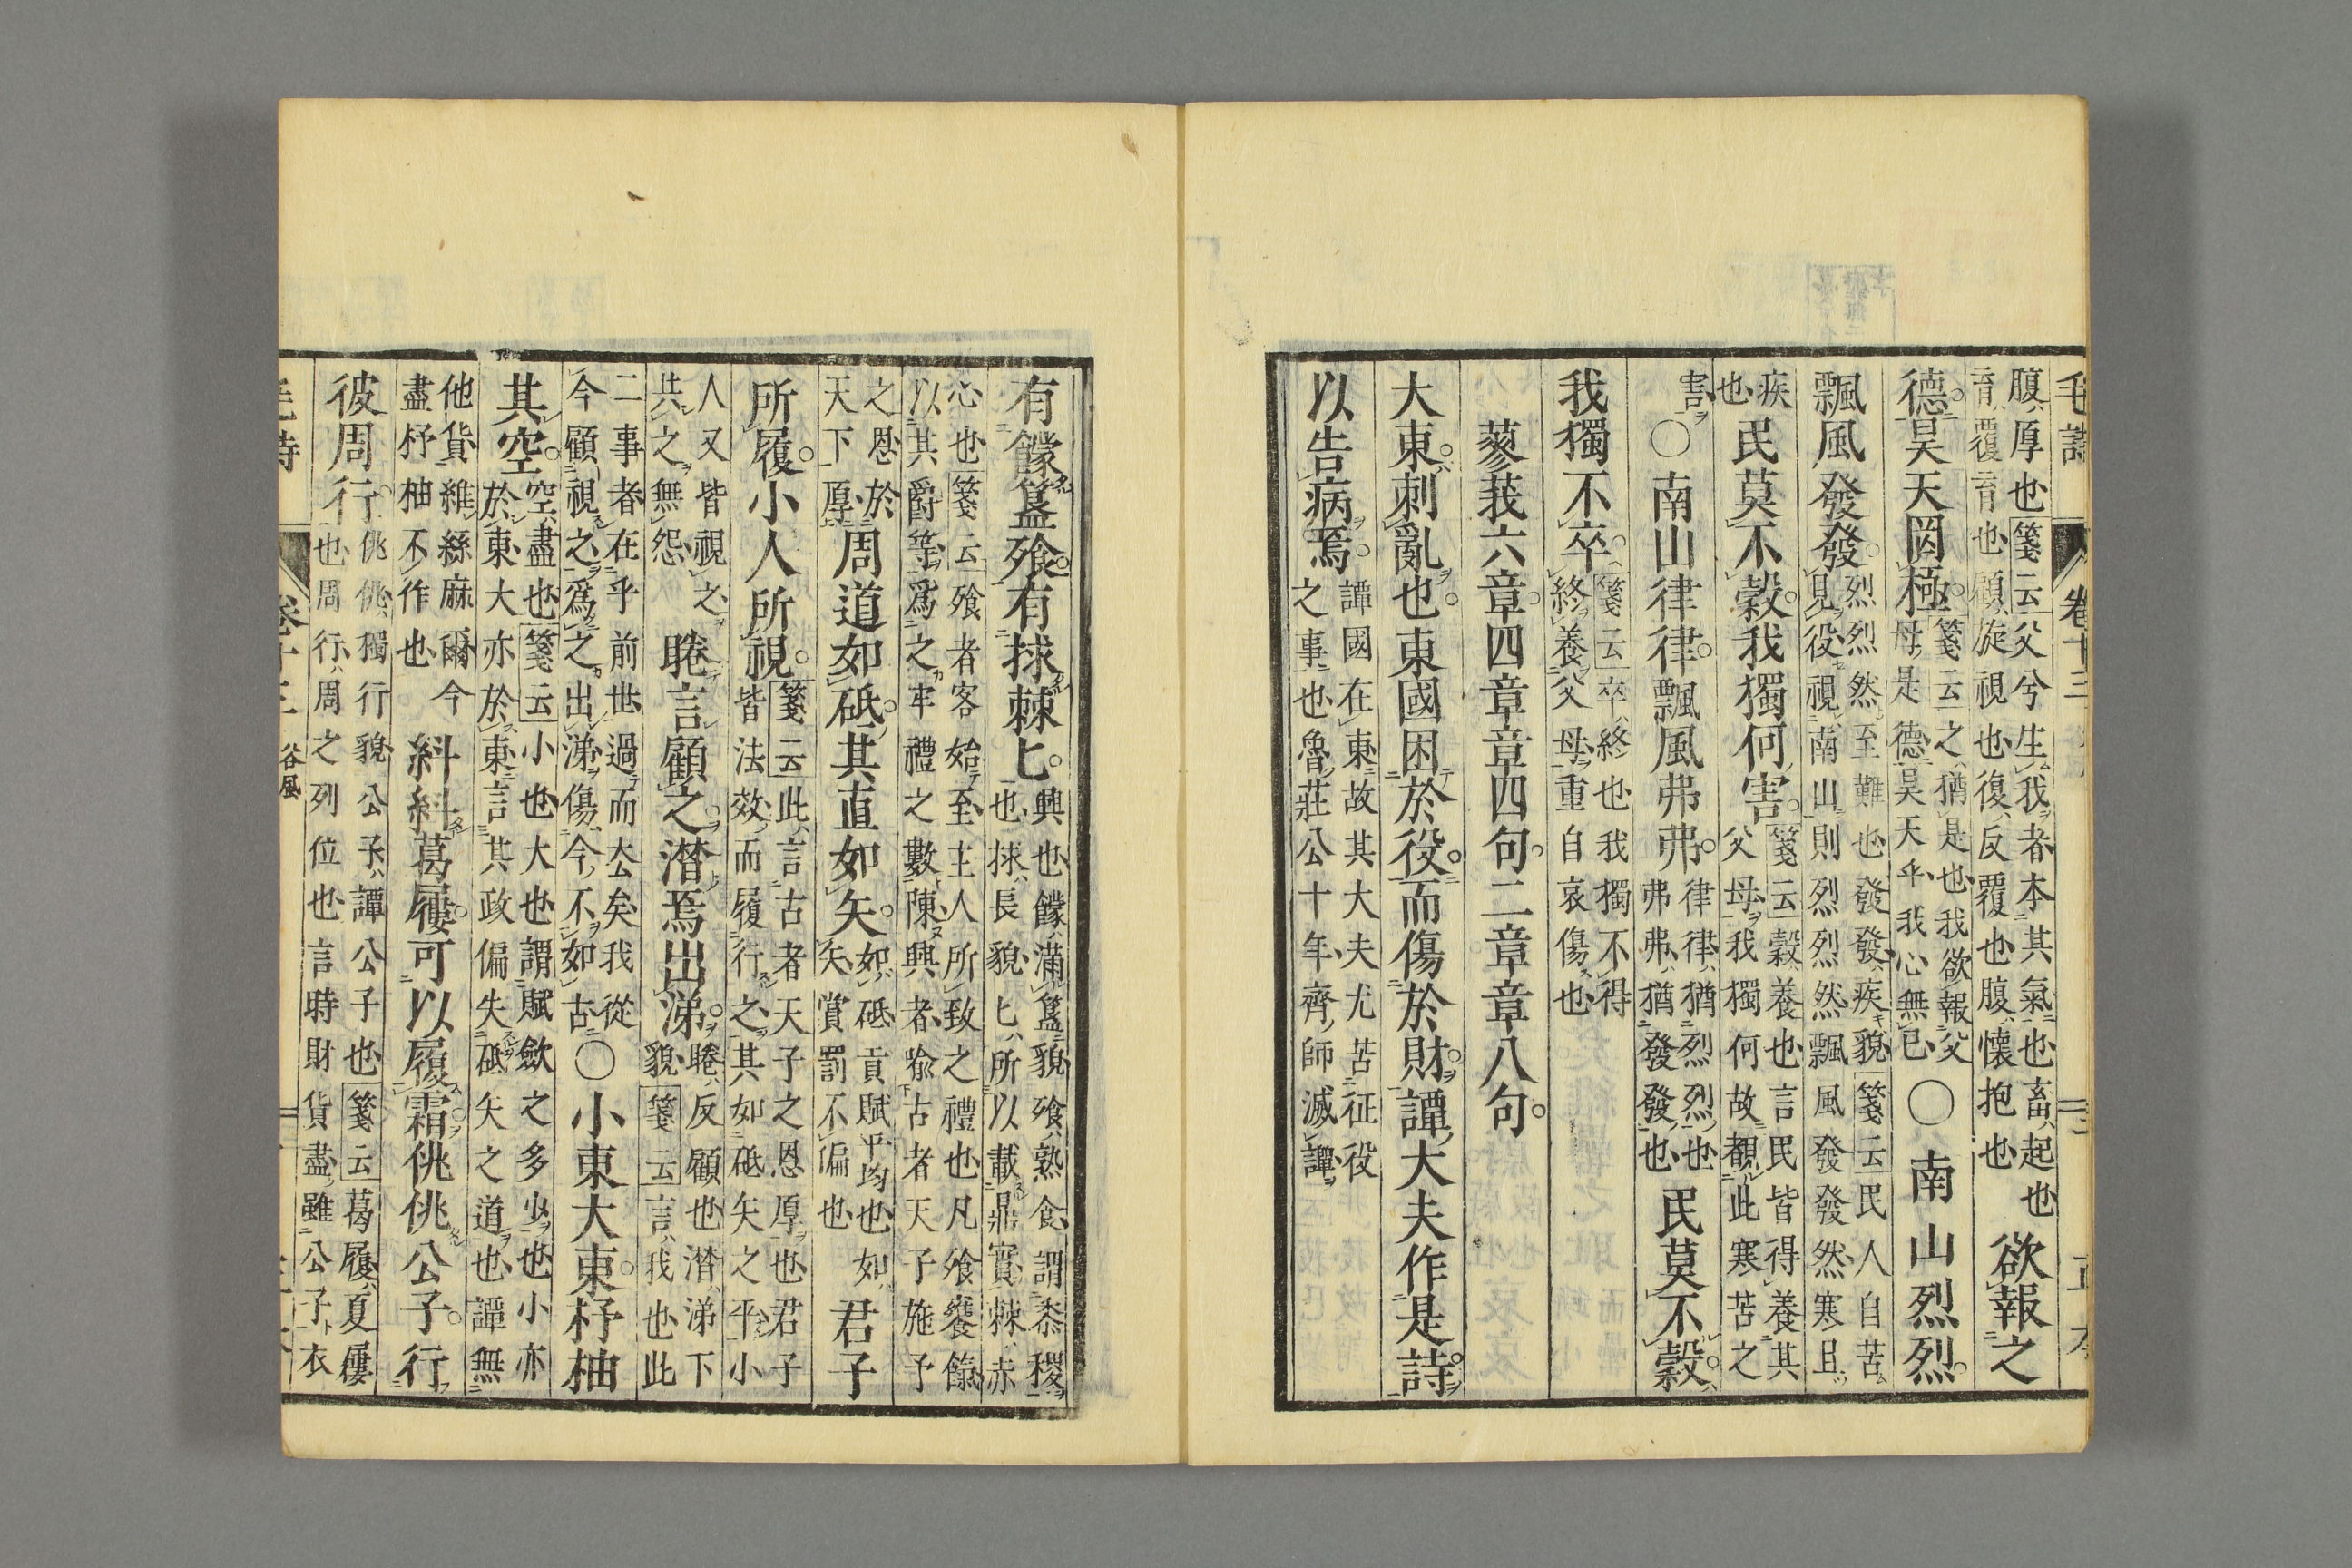 毛詩 卷十三
腹厚也箋云父兮生我者本其氣也畜起也
育覆育也顧旋視也復反覆也腹懷抱也
欲報之
德昊天罔極
箋云之猶是也我欲報父
母是德昊天乎我心無已
○南山烈烈
飄風發發
烈烈然至難也發發疾貌箋云民人自苦
見役視南山則烈烈然飄風發發然寒且
疾
也
民莫不穀我獨何害
箋云穀養也言民皆得養其
父母我獨何故覩此寒苦之
害
○南山律律飄風弗弗
律律猶烈烈也
弗弗猶發發也
民莫不穀
我獨不卒
箋云卒終也我獨不得
終養父母重自哀傷也
蓼莪六章四章章四句二章章八句
大東刺亂也東國困於役而傷於財譚大夫作是詩
以告病焉
譚國在東故其大夫尤苦征役
之事也魯莊公十年齊師滅譚
有饛簋飧有捄棘匕
興也饛滿簋貌飧熟食謂黍稷
也捄長貌匕所以載鼎實棘赤
心也箋云飧者客始至主人所致之禮也凡飧饔餼
以其爵等爲之牢禮之數陳興者喻古者天子施予
之恩於
天下厚
周道如砥其直如矢
如砥貢賦平均也如
矢賞罰不偏也
君子
所履小人所視
箋云此言古者天子之恩厚也君子
皆法效而履行之其如砥矢之平小
人又皆視之
共之無怨
睠言顧之潛焉出涕
睠反顧也潛涕下
貌箋云言我也此
二事者在乎前世過而去矣我從
今顧視之爲之出涕傷今不如古
○小東大東杼柚
其空
空盡也箋云小也大也謂賦斂之多少也小亦
於東大亦於東言其政偏失砥矢之道也譚無
他貨維絲麻爾今
盡杼柚不作也
糾糾葛屨可以履霜佻佻公子行
彼周行
佻佻獨行貌公子譚公子也箋云葛屨夏屨
也周行周之列位也言時財貨盡雖公子衣
谷風